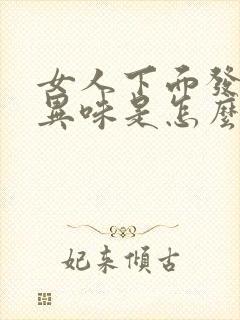 女人下面發
異味是怎麼
妃来傾古